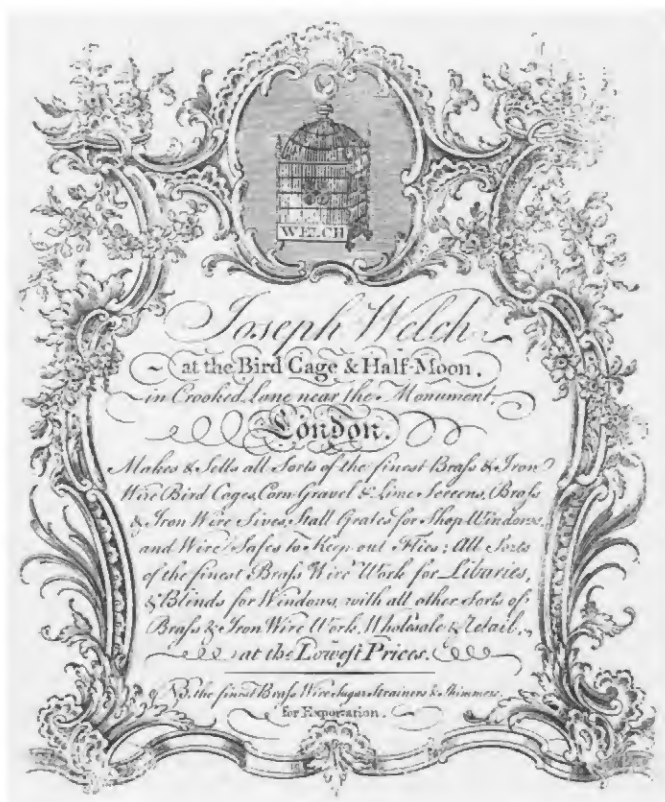 WELCH
Joseph Welch
at the Bird Cage & Half-Moon.
in Crooked Lane near the Monument.
London.
Makes & Sells all Sorts of the finest Brass & Iron
Wire Bird Cages, Corn Gravel & Lime Screens, Brass
& Iron Wire Sives, Stall Grates for Shop Windows,
and Wire Safes to Keep out Flies; All Sorts
of the finest Brass Wire Work for Libaries,
& Blinds for Windows, with all other Sorts of
Brass & Iron Wire Work, Wholesale & Retail,
at the Lowest Prices.
NB. the finest Brass Wire Sugar Strainers & Skimmers.
for Exportation.